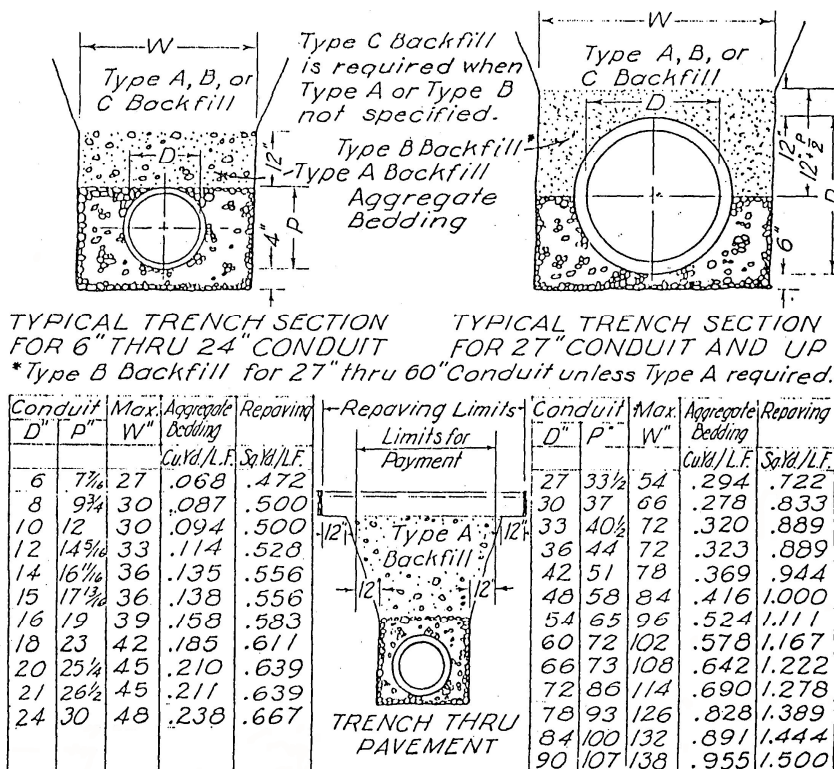 W
Type A, B, or
C Backfill
D
12"
4"
P
Type C Backfill
is required when
Type A or Type B
not specified.
Type B Backfill*
*Type A Backfill
Aggregate
Bedding
W
Type A, B, or
C Backfill
D
12"
12"+P/2
P
6"
TYPICAL TRENCH SECTION
FOR 6" THRU 24" CONDUIT
TYPICAL TRENCH SECTION
FOR 27" CONDUIT AND UP
*Type B Backfill for 27" thru 60" Conduit unless Type A required.
Conduit Max. Aggregate Repaving
D" P" W" Bedding
Cu.Yd./L.F. Sq.Yd./L.F.
6 7 7/16 27 .068 .472
8 9 3/4 30 .087 .500
10 12 30 .094 .500
12 14 5/16 33 .114 .528
14 16 11/16 36 .135 .556
15 17 13/16 36 .138 .556
16 19 39 .158 .583
18 23 42 .185 .611
20 25 1/4 45 .210 .639
21 26 1/2 45 .211 .639
24 30 48 .238 .667
Repaving Limits
Limits for
Payment
12" 12"
Type A
Backfill
12" 12"
TRENCH THRU
PAVEMENT
Conduit Max. Aggregate Repaving
D" P" W" Bedding
Cu.Yd./L.F. Sq.Yd./L.F.
27 33 1/2 54 .294 .722
30 37 66 .278 .833
33 40 1/2 72 .320 .889
36 44 72 .323 .889
42 51 78 .369 .944
48 58 84 .416 1.000
54 65 96 .524 1.111
60 72 102 .578 1.167
66 73 108 .642 1.222
72 86 114 .690 1.278
78 93 126 .828 1.389
84 100 132 .891 1.444
90 107 138 .955 1.500